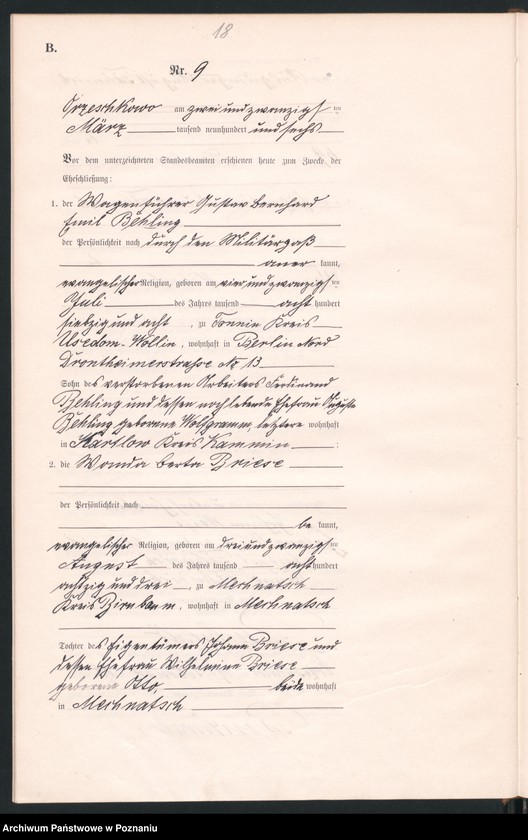 18
B.
Nr. 9
Orzeschkowo am zwei und zwanzigsten
März tausend neunhundert und sechs
Vor dem unterzeichneten Standesbeamten erschienen heute zum Zwecke der
Eheschließung:
1. der Wagenführer Gustav Bernhard
Emil Behling
der Persönlichkeit nach durch den Militärpaß
aner kannt,
evangelischer Religion, geboren am vier und zwanzigsten
Juli des Jahres tausend acht hundert
siebzig und acht, zu Tonnin Kreis
Usedom-Wollin, wohnhaft in Berlin Nord
Drontheimerstrasse No 13
Sohn des verstorbenen Arbeiters Ferdinand
Behling und dessen noch lebende Ehefrau Auguste
Behling geborene Wolfgramm, letztere wohnhaft
in Kartlow Kreis Kammin :
2. die Wanda Berta Briese
der Persönlichkeit nach
be kannt,
evangelischer Religion, geboren am drei und zwanzigsten
August des Jahres tausend acht hundert
achtzig und drei, zu Mechnatsch
Kreis Birnbaum, wohnhaft in Mechnatsch
Tochter des Eigentümers Johann Briese und
dessen Ehefrau Wilhelmine Briese
geborene Otto, beide wohnhaft
in Mechnatsch
Archiwum Państwowe w Poznaniu